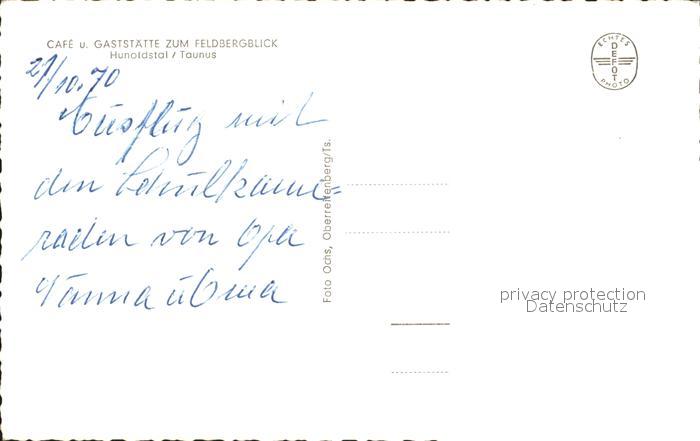 CAFÉ u. GASTSTÄTTE ZUM FELDBERGBLICK
Hunoldstal / Taunus
ECHTES
DEFOT
PHOTO
21/10.70
Ausflug mit
den Schulkame=
raden von Opa
Tanna u Oma
Foto Ochs, Oberreifenberg/Ts.
privacy protection
Datenschutz